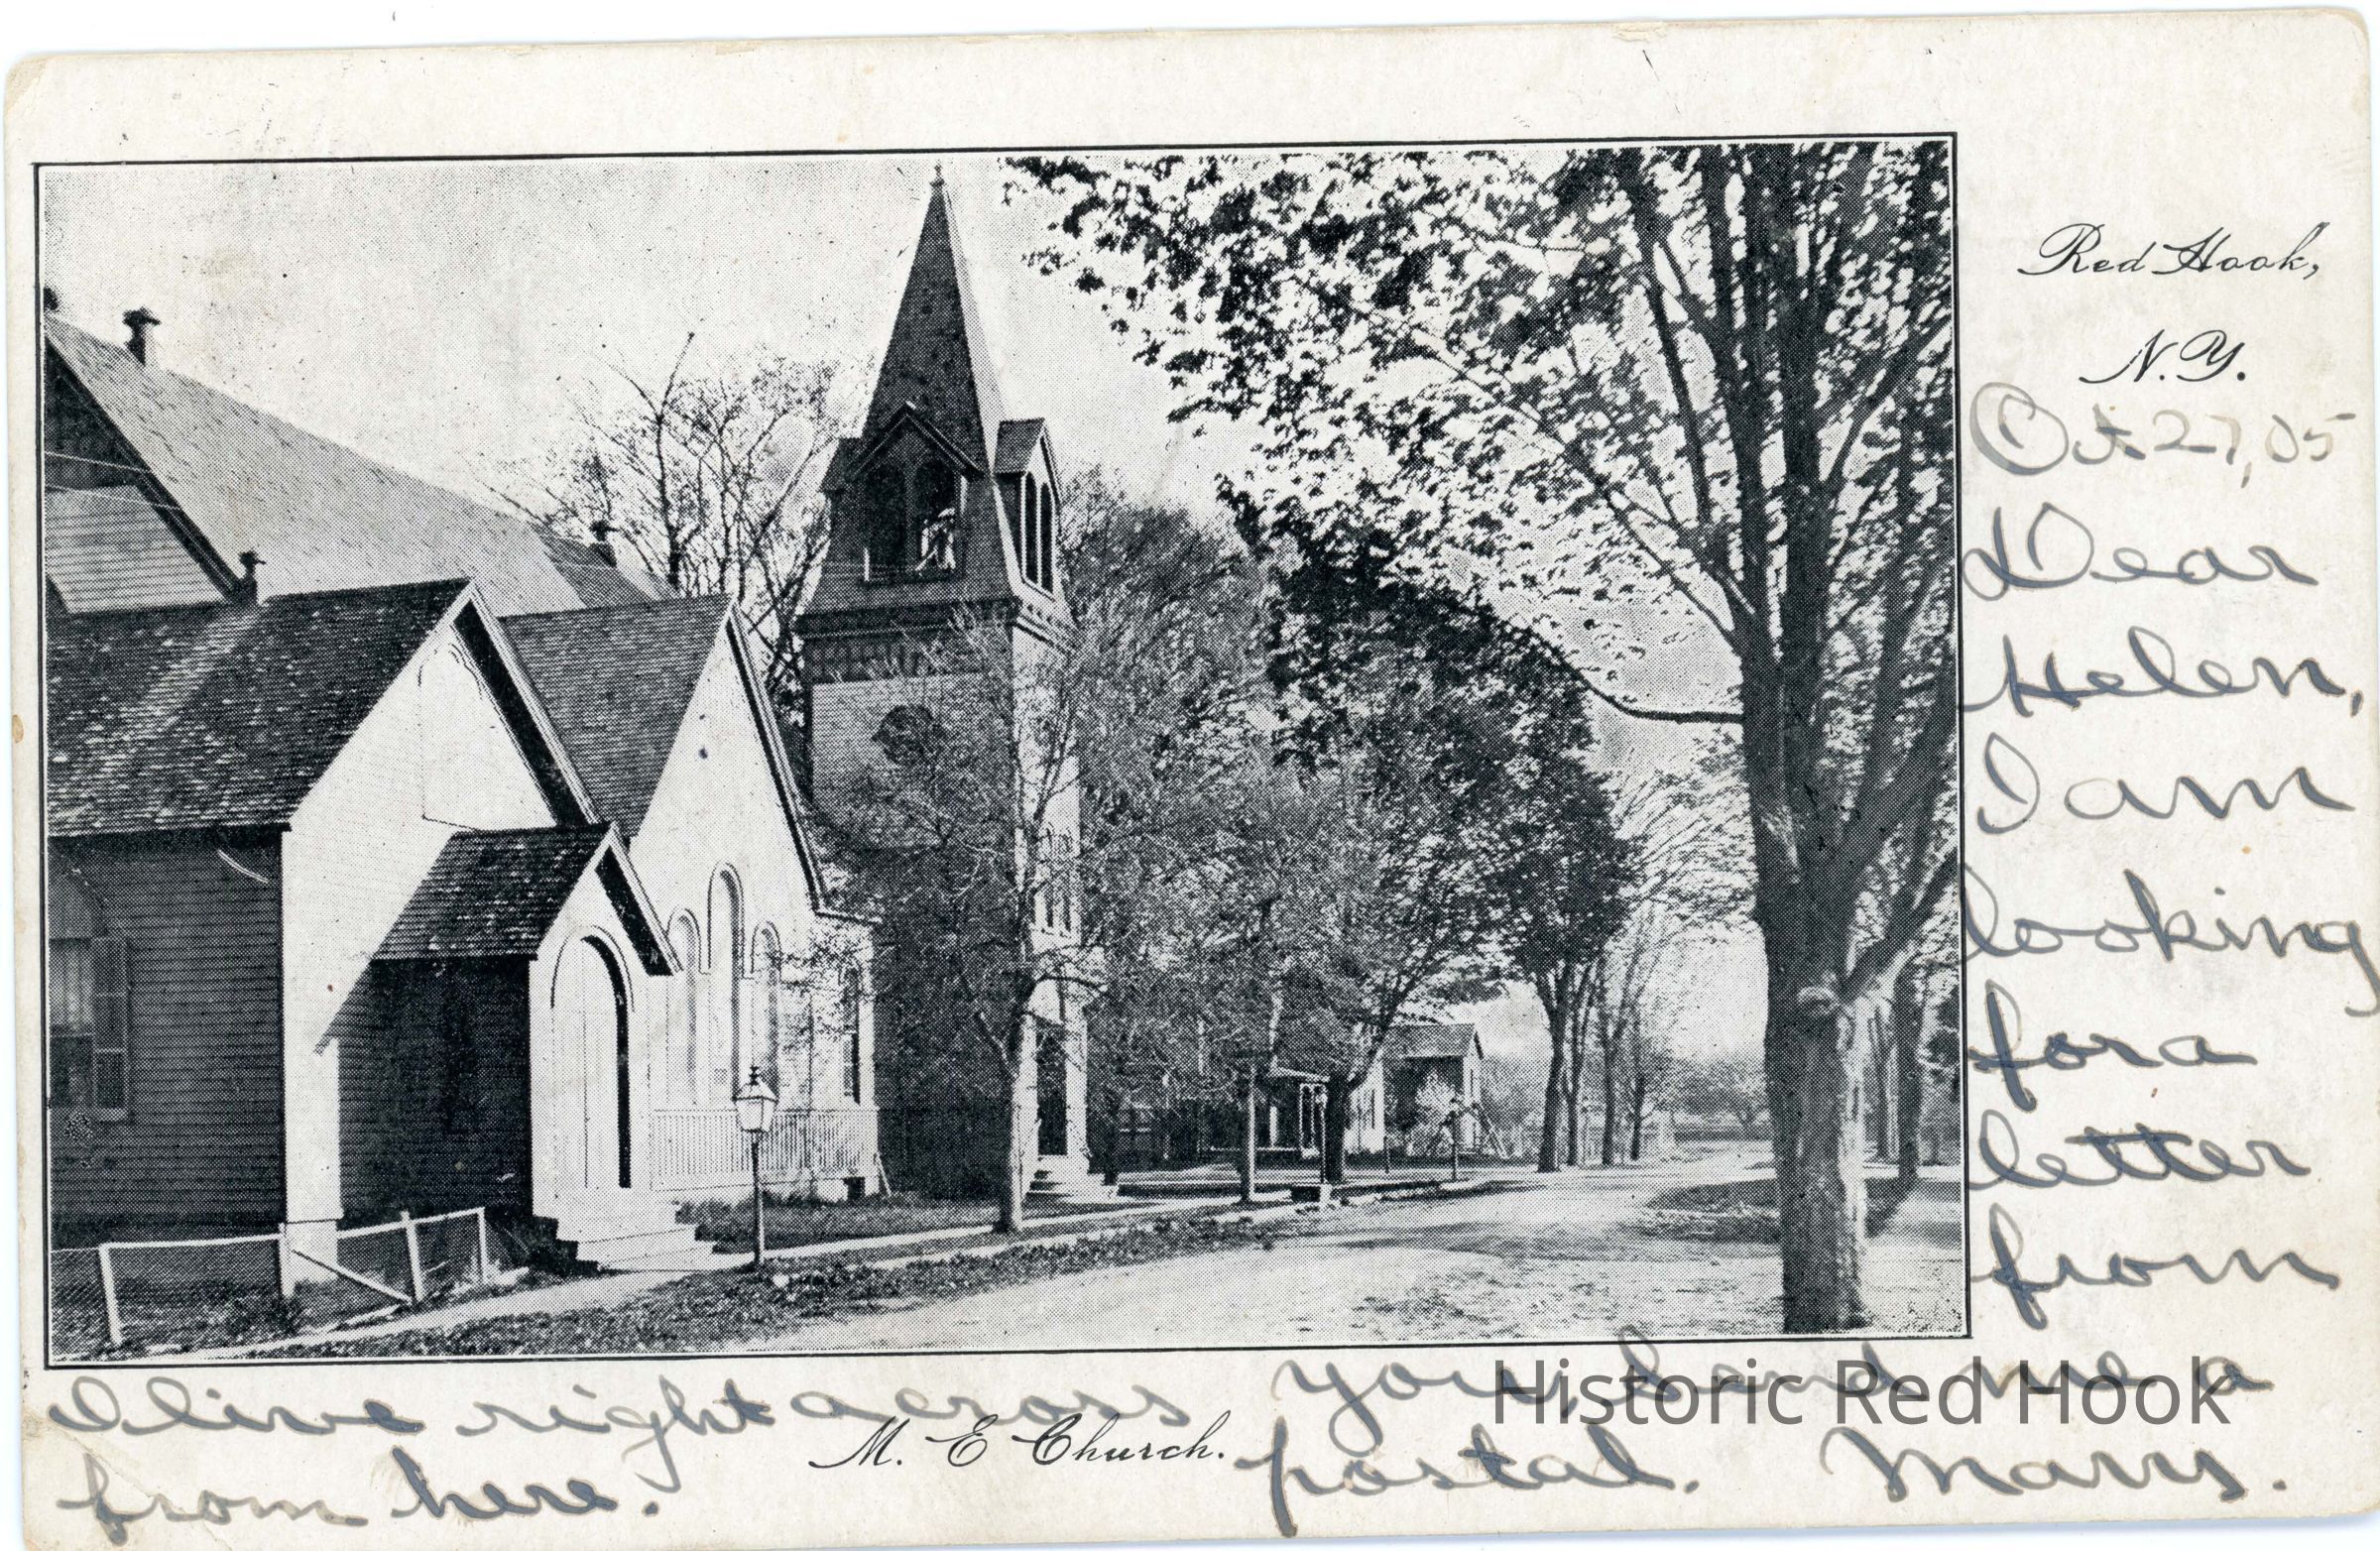 Red Hook,
N. Y.
Oct 27, 05
Dear
Helen,
I am
looking
for a
letter
from
you, send me a
postal.
I live right across
from here.
M. E Church.
Historic Red Hook